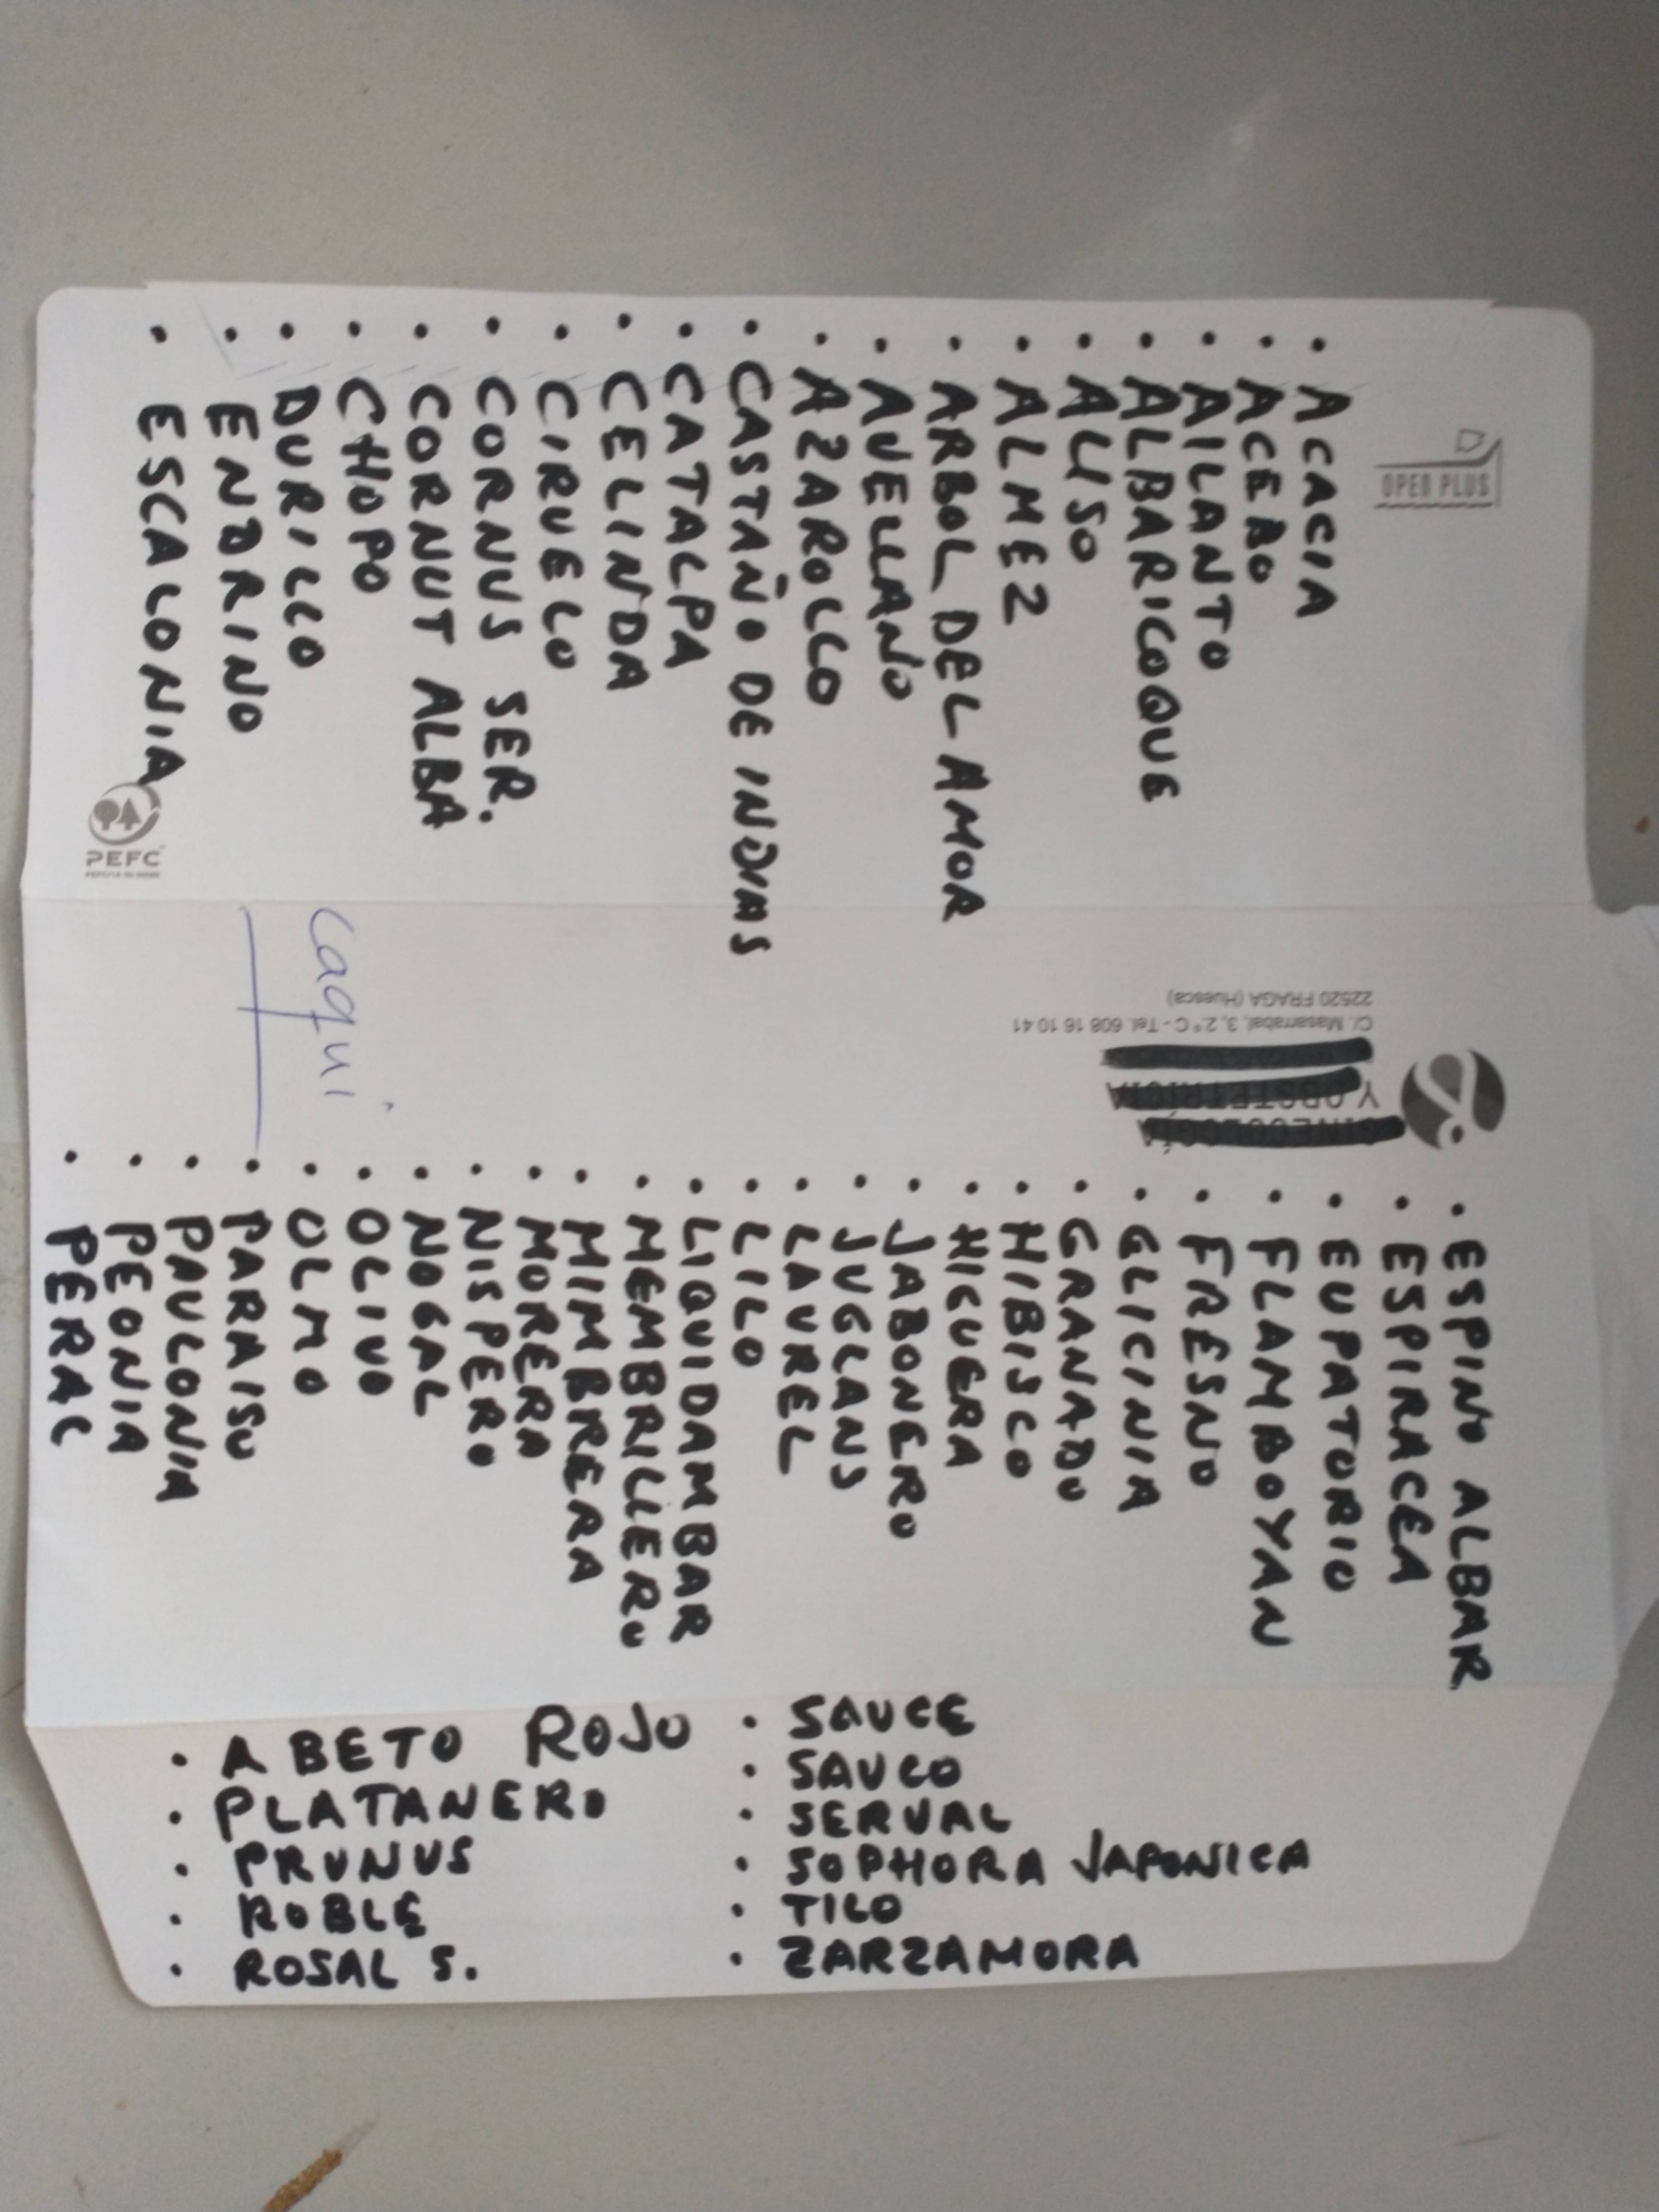 OPEN PLUS
· ACACIA
· ACEBO
· AILANTO
· ALBARICOQUE
· ALISO
· ALMEZ
· ARBOL DEL AMOR
· AVELLANO
· AZAROLLO
· CASTAÑO DE INDIAS
· CATALPA
· CELINDA
· CIRUELO
· CORNUS SER.
· CORNUT ALBA
· CHOPO
· DURILLO
· ENDRINO
· ESCALONIA
PEFC
Y OBSTETRICIA
C/. Masarrabal, 3, 2.º C - Tel. 608 16 10 41
22520 FRAGA (Huesca)
caqui
· ESPINO ALBAR
· ESPIRACEA
· EUPATORIO
· FLAMBOYAN
· FRESNO
· GLICINIA
· GRANADO
· HIBISCO
· HIGUERA
· JABONERO
· JUGLANS
· LAUREL
· LILO
· LIQUIDAMBAR
· MEMBRILLERO
· MIMBRERA
· MORERA
· NISPERO
· NOGAL
· OLIVO
· OLMO
· PARAISO
· PAULONIA
· PEONIA
· PERAL
· ABETO ROJO
· PLATANERO
· PRUNUS
· ROBLE
· ROSAL S.
· SAUCE
· SAUCO
· SERVAL
· SOPHORA JAPONICA
· TILO
· ZARZAMORA